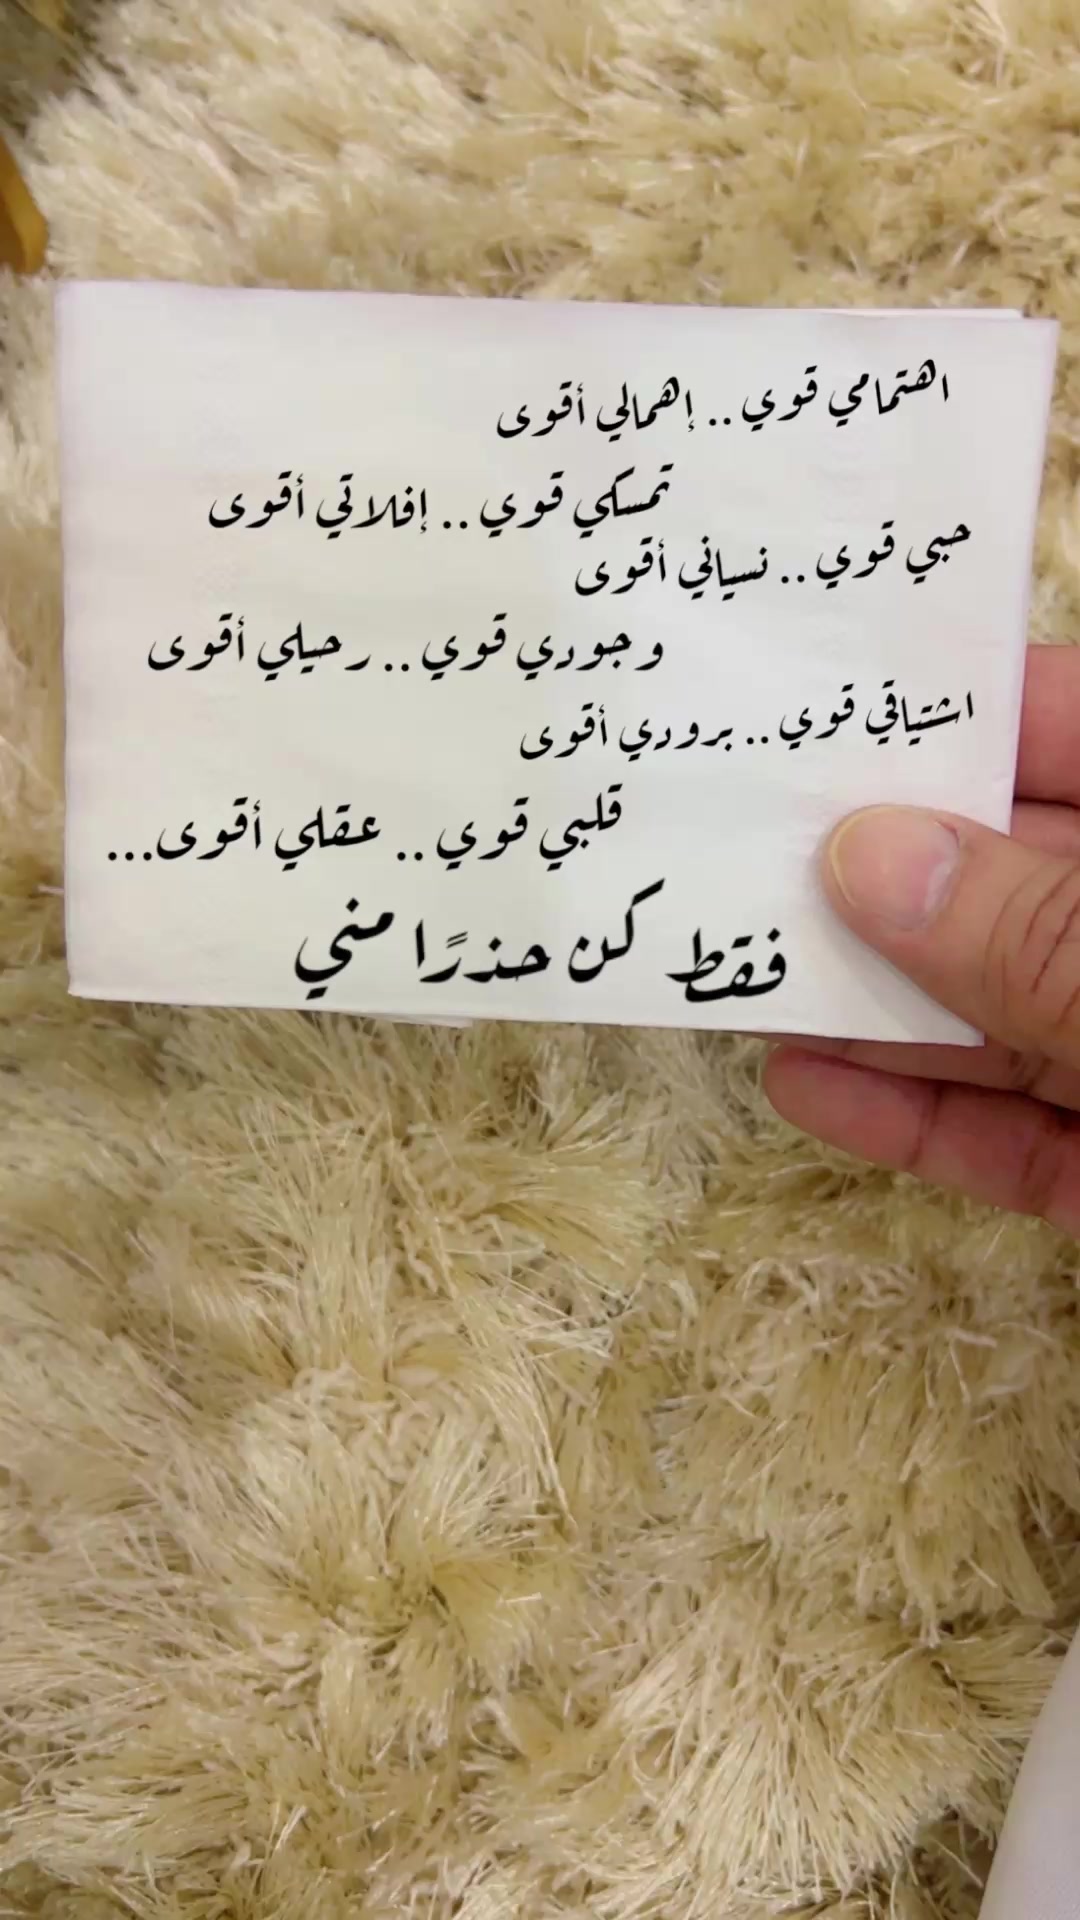 اهتمامي قوي .. إهمالي أقوى
تمسكي قوي .. إفلاتي أقوى
حبي قوي .. نسياني أقوى
وجودي قوي .. رحيلي أقوى
اشتياقي قوي .. برودي أقوى
قلبي قوي .. عقلي أقوى...
فقط كن حذرًا مني